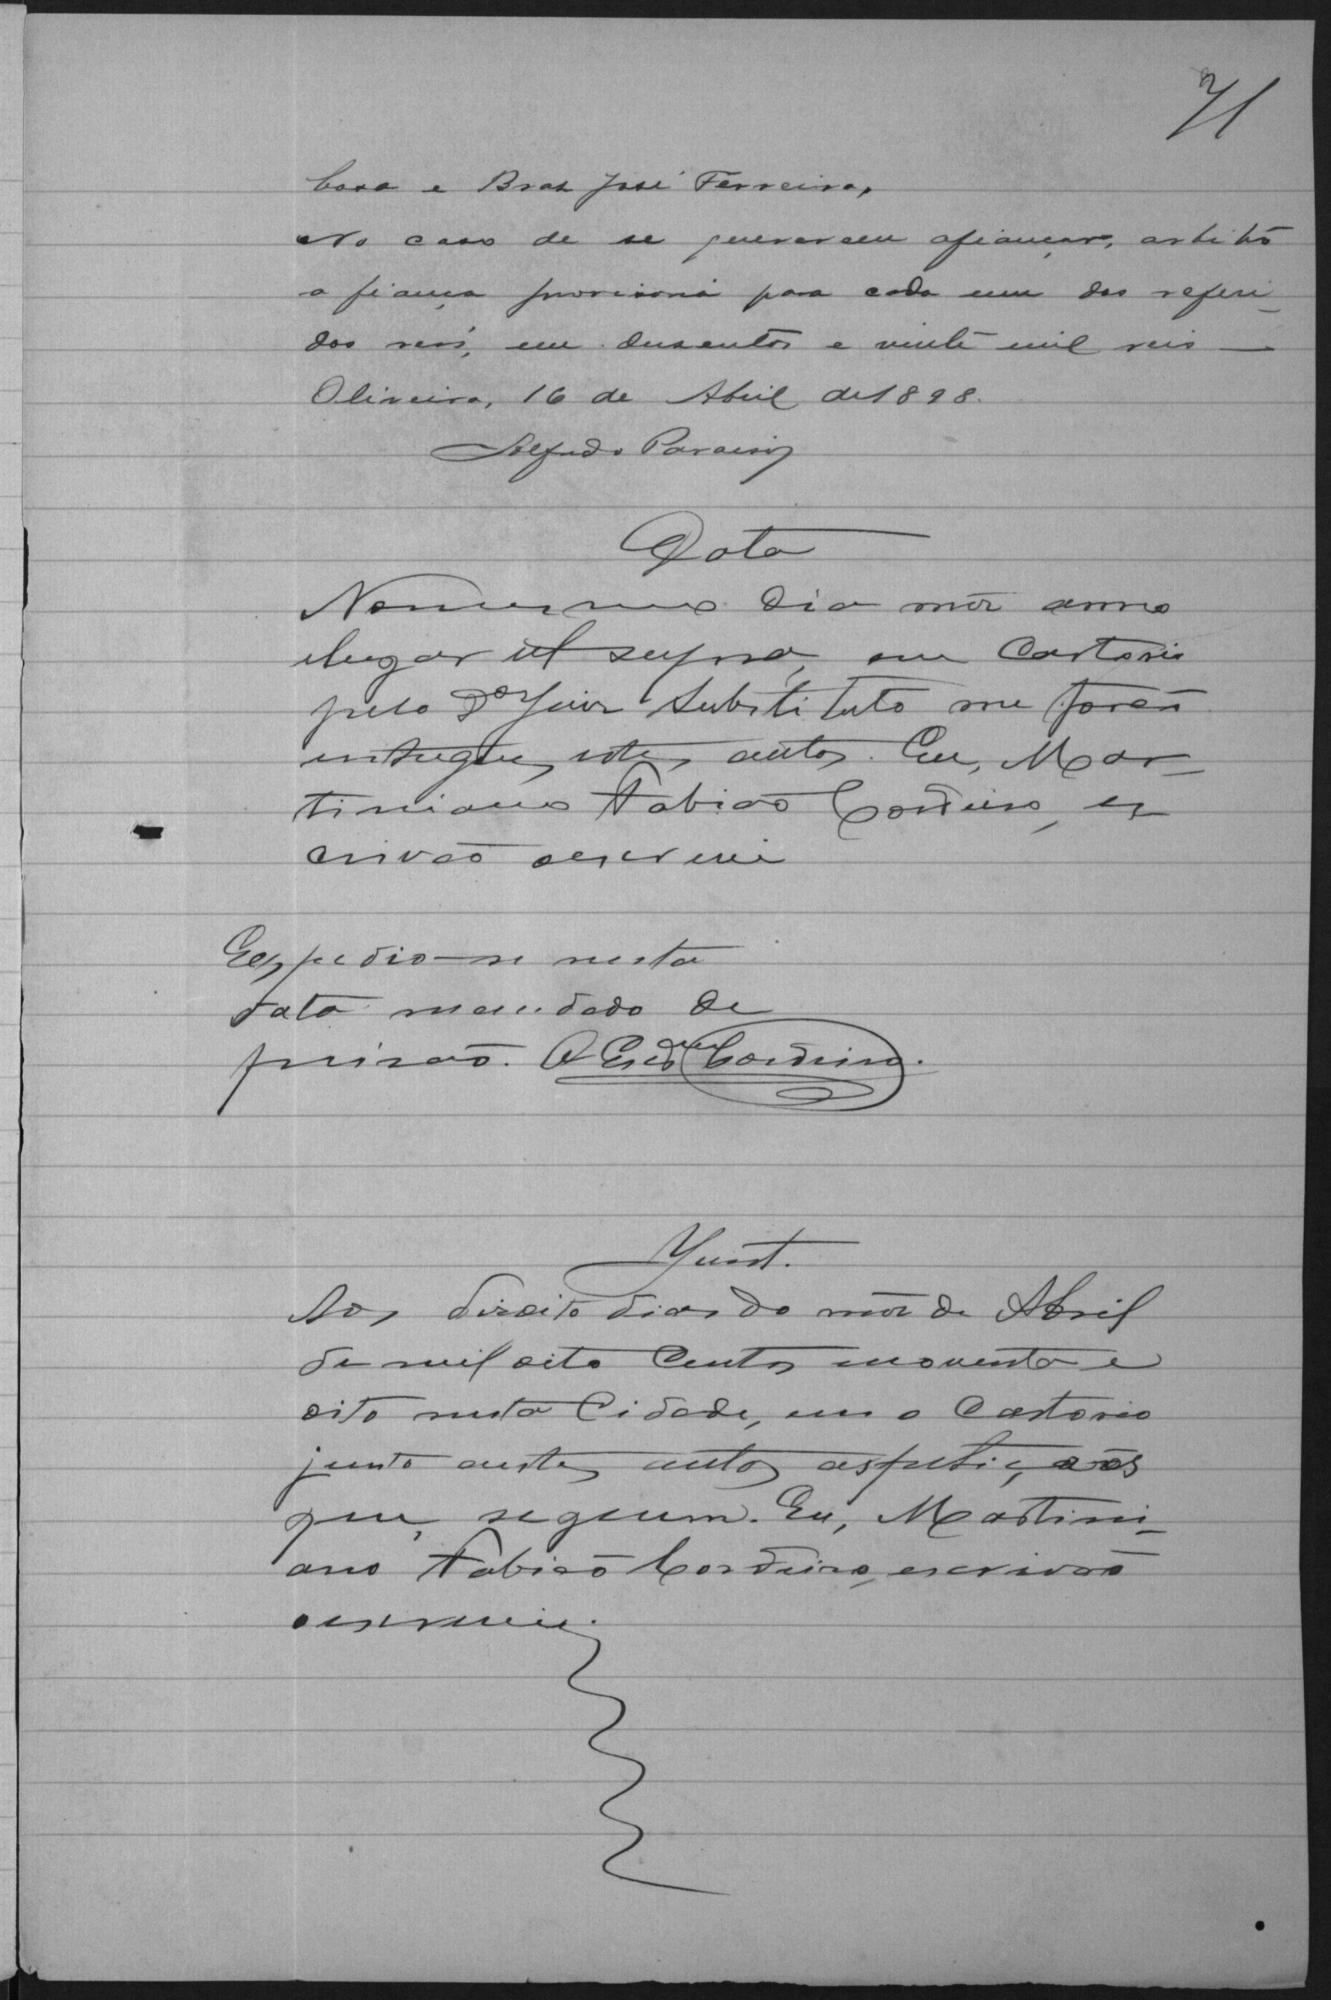 71
e Braz José Ferreira,
No caso de se quererem afiançar, arbitro
a fiança provisoria para cada um dos referi-
dos reos, em dusentos e vinte mil reis —
Oliveira, 16 de Abril de 1898.
Alfredo Paraiso
Data
No mesmo dia mez anno
e lugar ut supra, em Cartorio
pelo Dor Juiz Substituto me forão
entregues estes autos. Eu, Mar-
tiniano Fabião Cordeiro, es
crivão o escrevi
Expedio-se nesta
data mandado de
prisão. O Escrm Cordeiro.
Junt.
Aos dizoito dias do mez de Abril
de mil oito Centos e noventa e
oito nesta Cidade, em o Cartorio
junto a estes autos as petições
que seguem. Eu, Martini-
ano Fabião Cordeiro, escrivão
o escrevi.